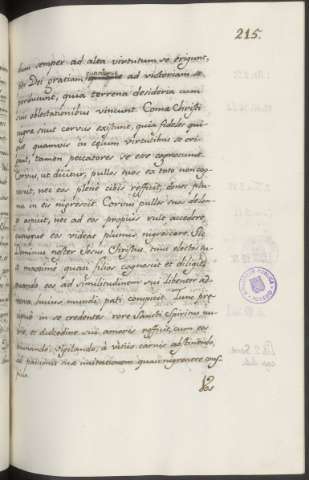 215.
dum semper ad alta virtutum se erigunt,
per Dei gratiam ad victoriam se
perducunt, quia terrena desideria cum
suis oblectationibus vincunt. Comæ Christi
nigræ sicut corvus existunt, quia fideles qui
quamvis in cælum virtutibus se eri
gant, tamen peccatores se esse cognoscunt.
Corvus, ut dicitur, pullos suos ex toto non cog
noscit, nec eos plene cibis reficit, donec plu
ma in eis nigrescit. Corvus pullos suos
nec ad eos propius vult accedere,
eos videat plumis nigrescere. Sic
Dominus noster Jesus Christus, tunc electos su
os maxime quasi filios cognoscit et diligit,
quando eos ad similitudinem sui libenter ad
versa hujus mundi pati conspicit. Tunc pro
in se credentes rore Sancti Spiritus
et dulcedine sui amoris reficit, cum eos
vigilando, à vitiis carnis abstinendo,
passionis suæ imitationem quasi nigrescere cons
picit.